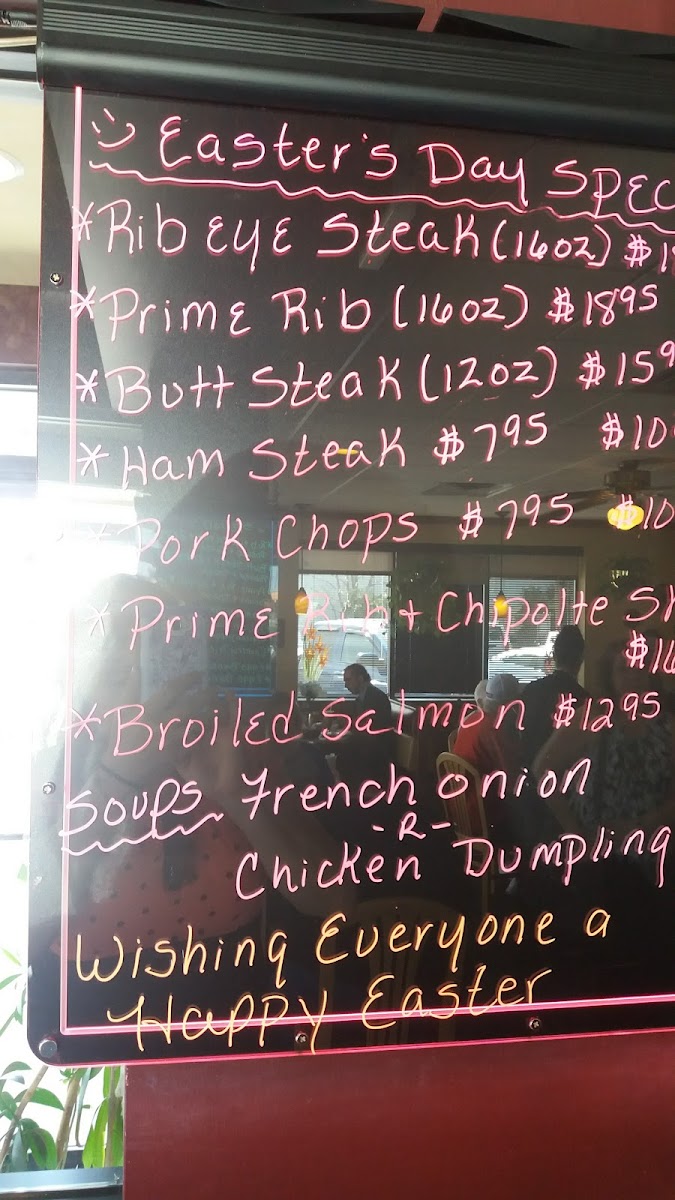 Easter's Day SPEC
*Rib EyE Steak (16oz) $1
*Prime Rib (16oz) $1895
*Butt Steak (12oz) $159
*Ham Steak $795 $10
*Pork Chops $795 $10
*Prime Rib + Chipolte Sh
$16
*Broiled Salmon $1295
Soups French onion
-R-
Chicken Dumpling
Wishing Everyone a
Happy Easter